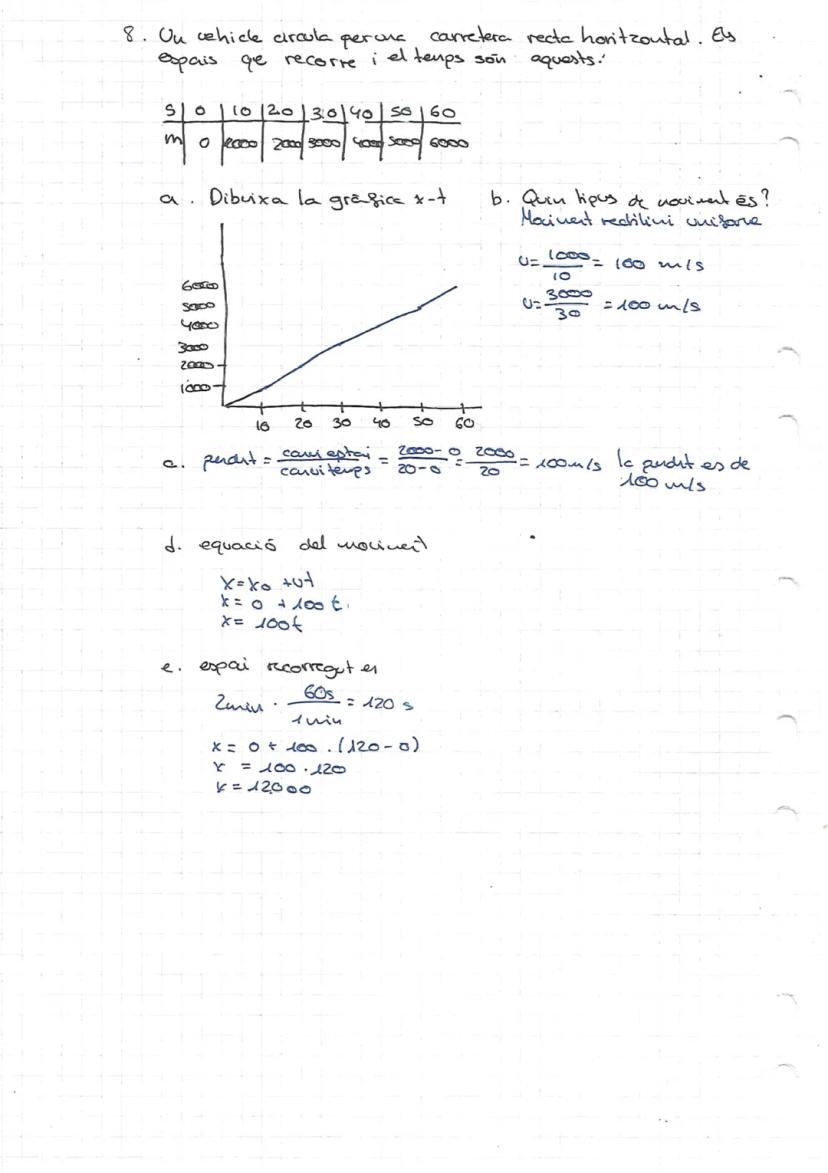 8. Un vehicle circula per una carretera recta horitzontal. Els
espais que recorre i el temps són aquests:
s | 0 | 10 | 20 | 30 | 40 | 50 | 60
m | 0 | 1000 | 2000 | 3000 | 4000 | 5000 | 6000
a. Dibuixa la gràfica x-t
6000
5000
4000
3000
2000
1000
10 20 30 40 50 60
b. Quin tipus de moviment és?
Moviment rectilini uniforme
v = 1000/10 = 100 m/s
v = 3000/30 = 100 m/s
c. pendent = canvi espai/canvi temps = 2000-0/20-0 = 2000/20 = 100 m/s la pendent es de
100 m/s
d. equació del moviment
x = x0 + vt
x = 0 + 100 t.
x = 100t
e. espai recorregut en
2min · 60s/1min = 120 s
x = 0 + 100 . (120 - 0)
x = 100 . 120
x = 12000